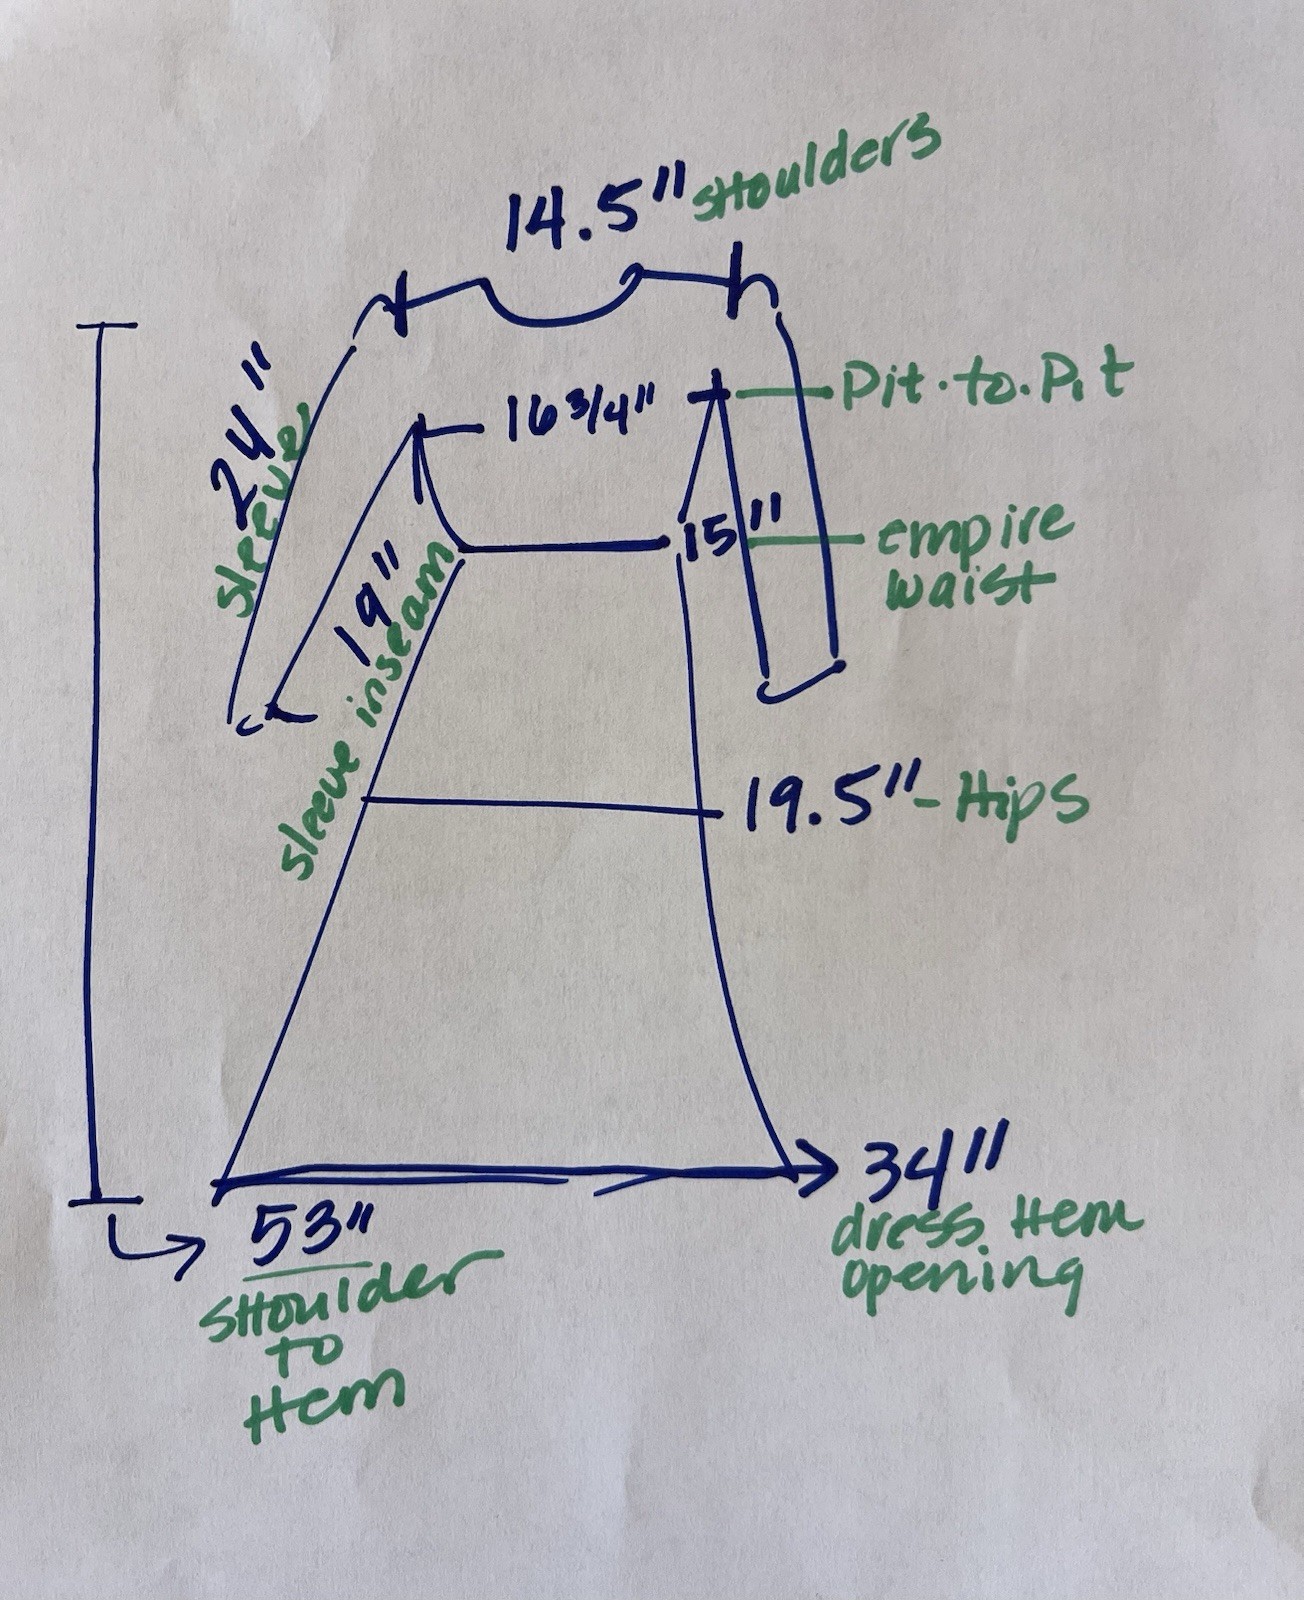 14.5" SHoulders
24" sleeve
16 3/4" Pit.to.Pit
15" empire
waist
19" sleeve inseam
19.5" - Hips
34"
dress Hem
opening
53"
SHoulder
to
Hem